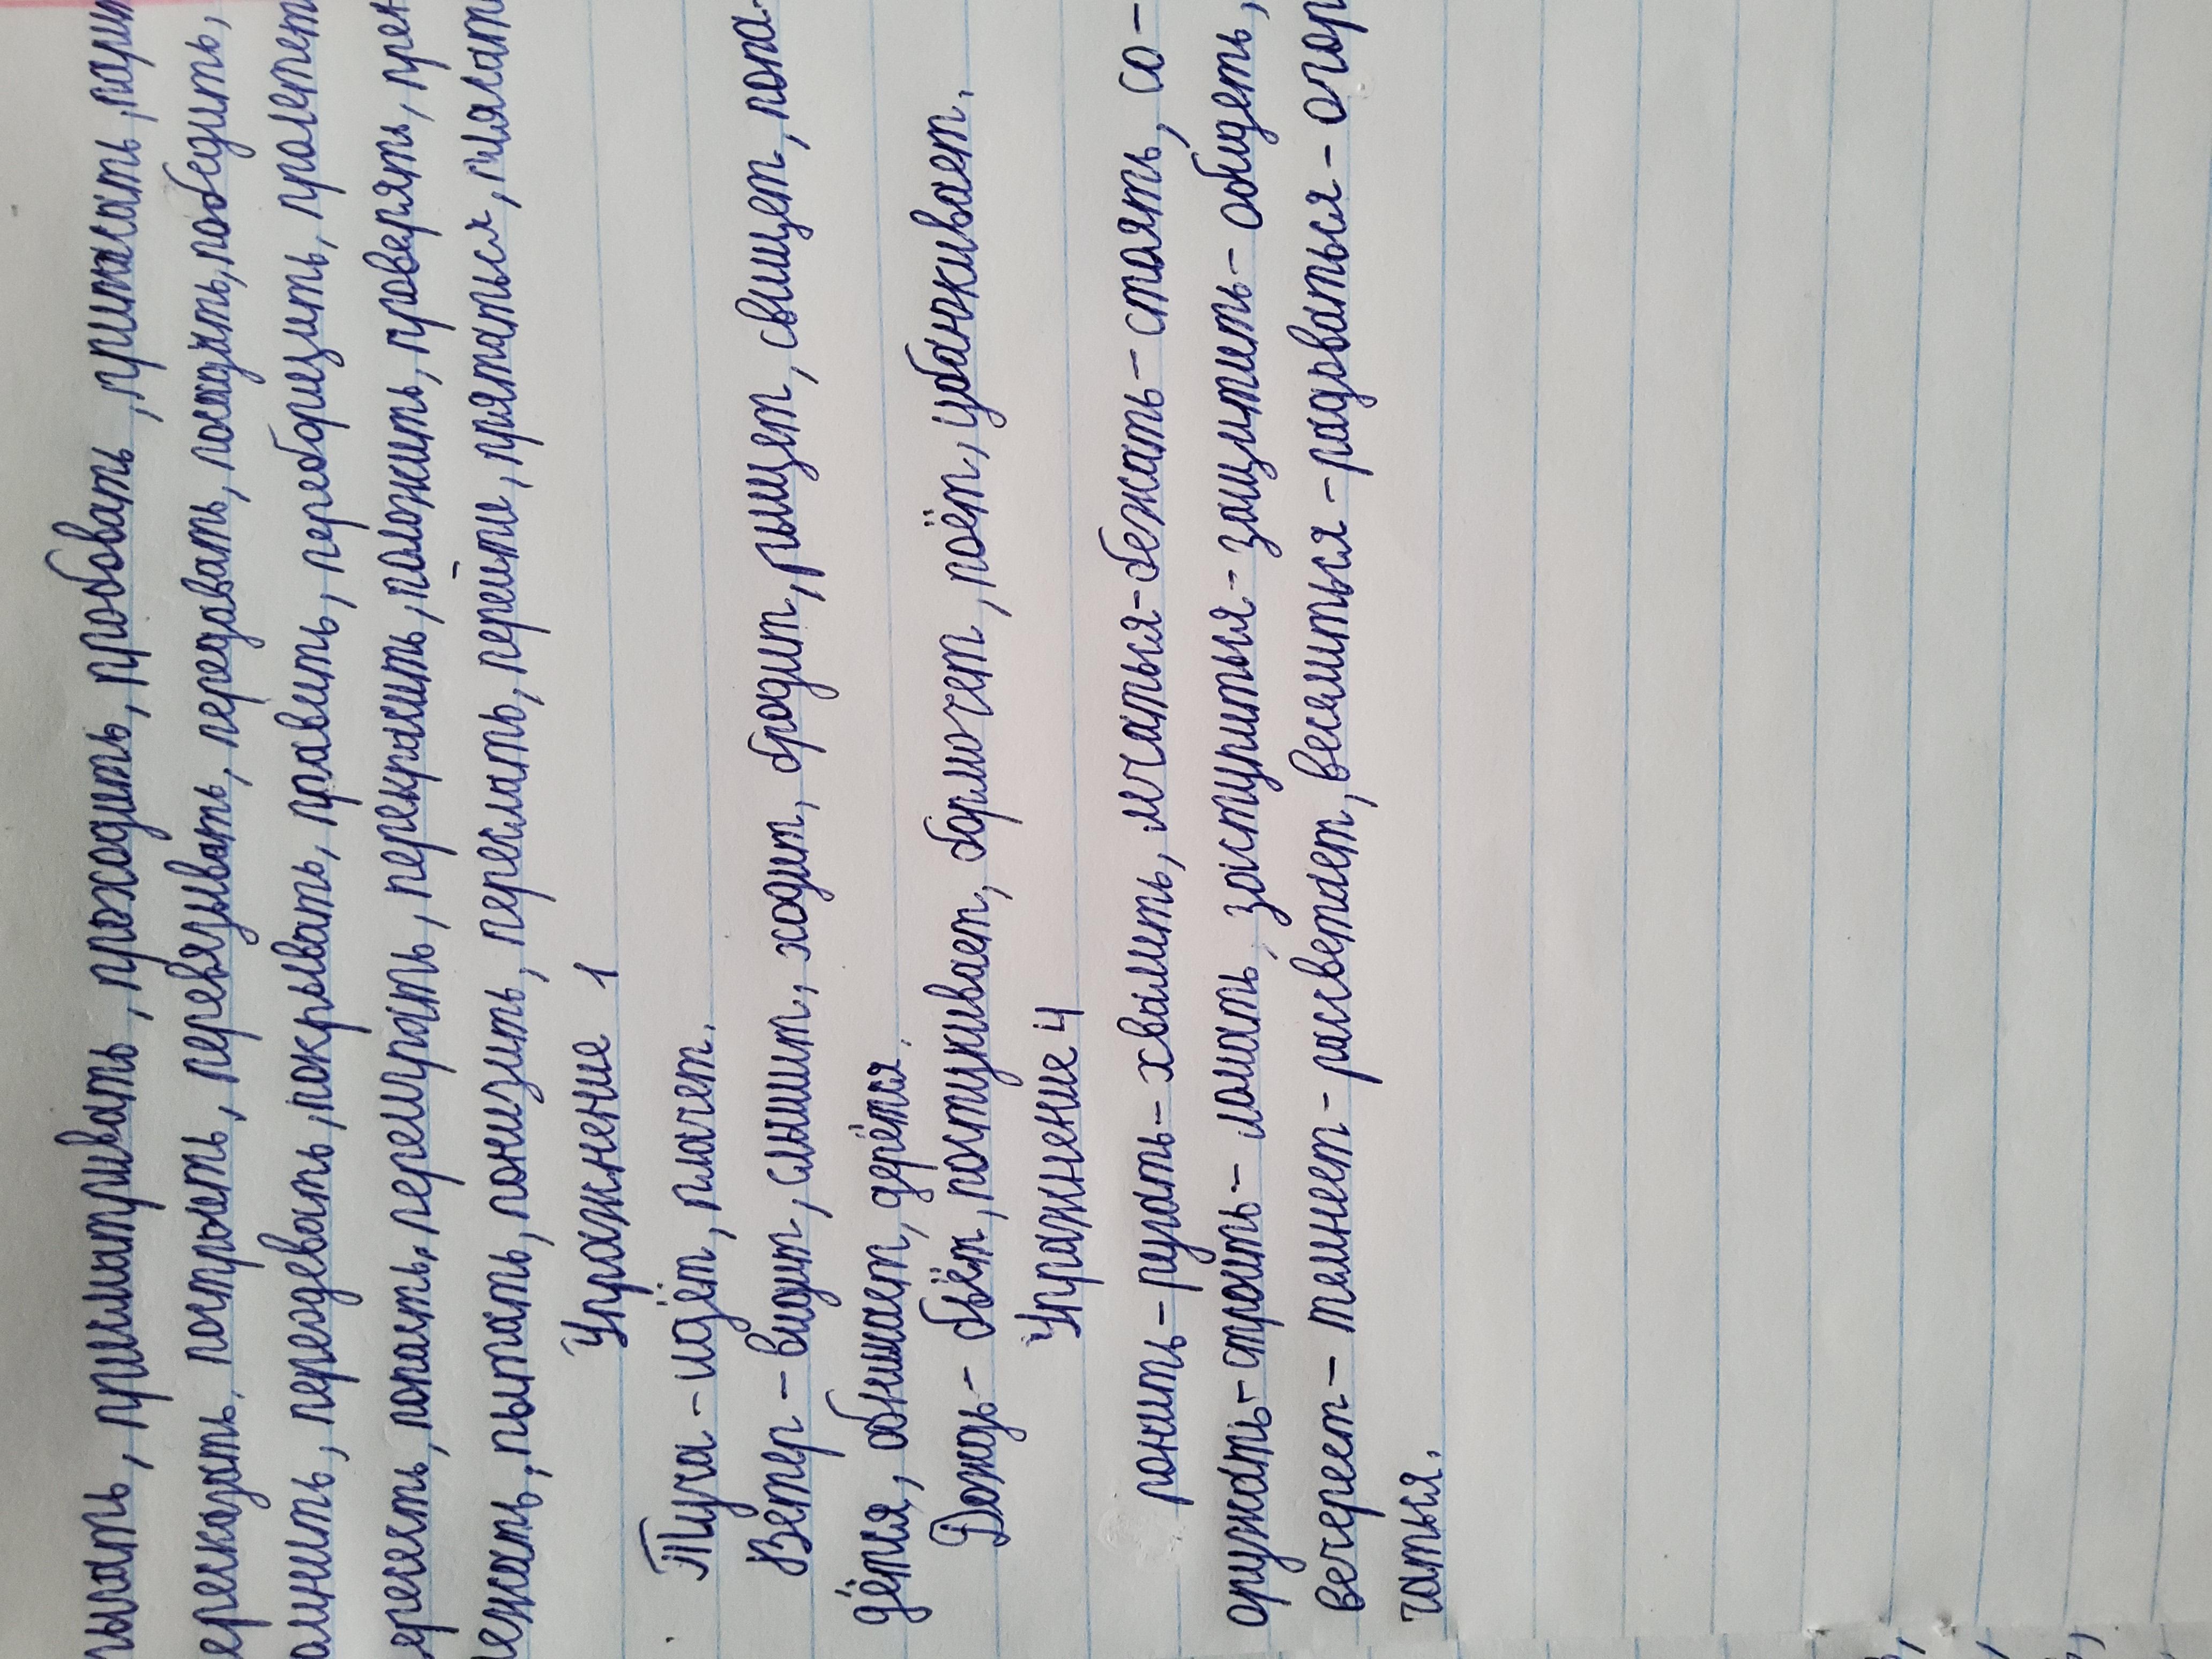 присматривать, проходить, пробовать, прижасать
построить, перевязывать, передавать, посадить, победить,
переодевать, покрывать, править, переборщить, пролетет
попасть, перешрать, перекрасить, положить, проверять,
пытать, понизить, переслать, перейти, прятаться,
Упражнение 1
Туча - идёт, плачет.
Ветер - видит, слышит, ходит, бродит, рыщет, свищет, попа-
дётся, обнимает, дерётся.
Дождь - бьёт, постукивает, бормочет, поёт, убаюкивает.
Упражнение 4
ронить - ругать - хвалить, мчаться - бежать - стоять, со-
оружать - строить - ломать, заступиться - защитить - обидеть,
вечереет - темнеет - рассветает, веселиться - радоваться - огор
чаться.